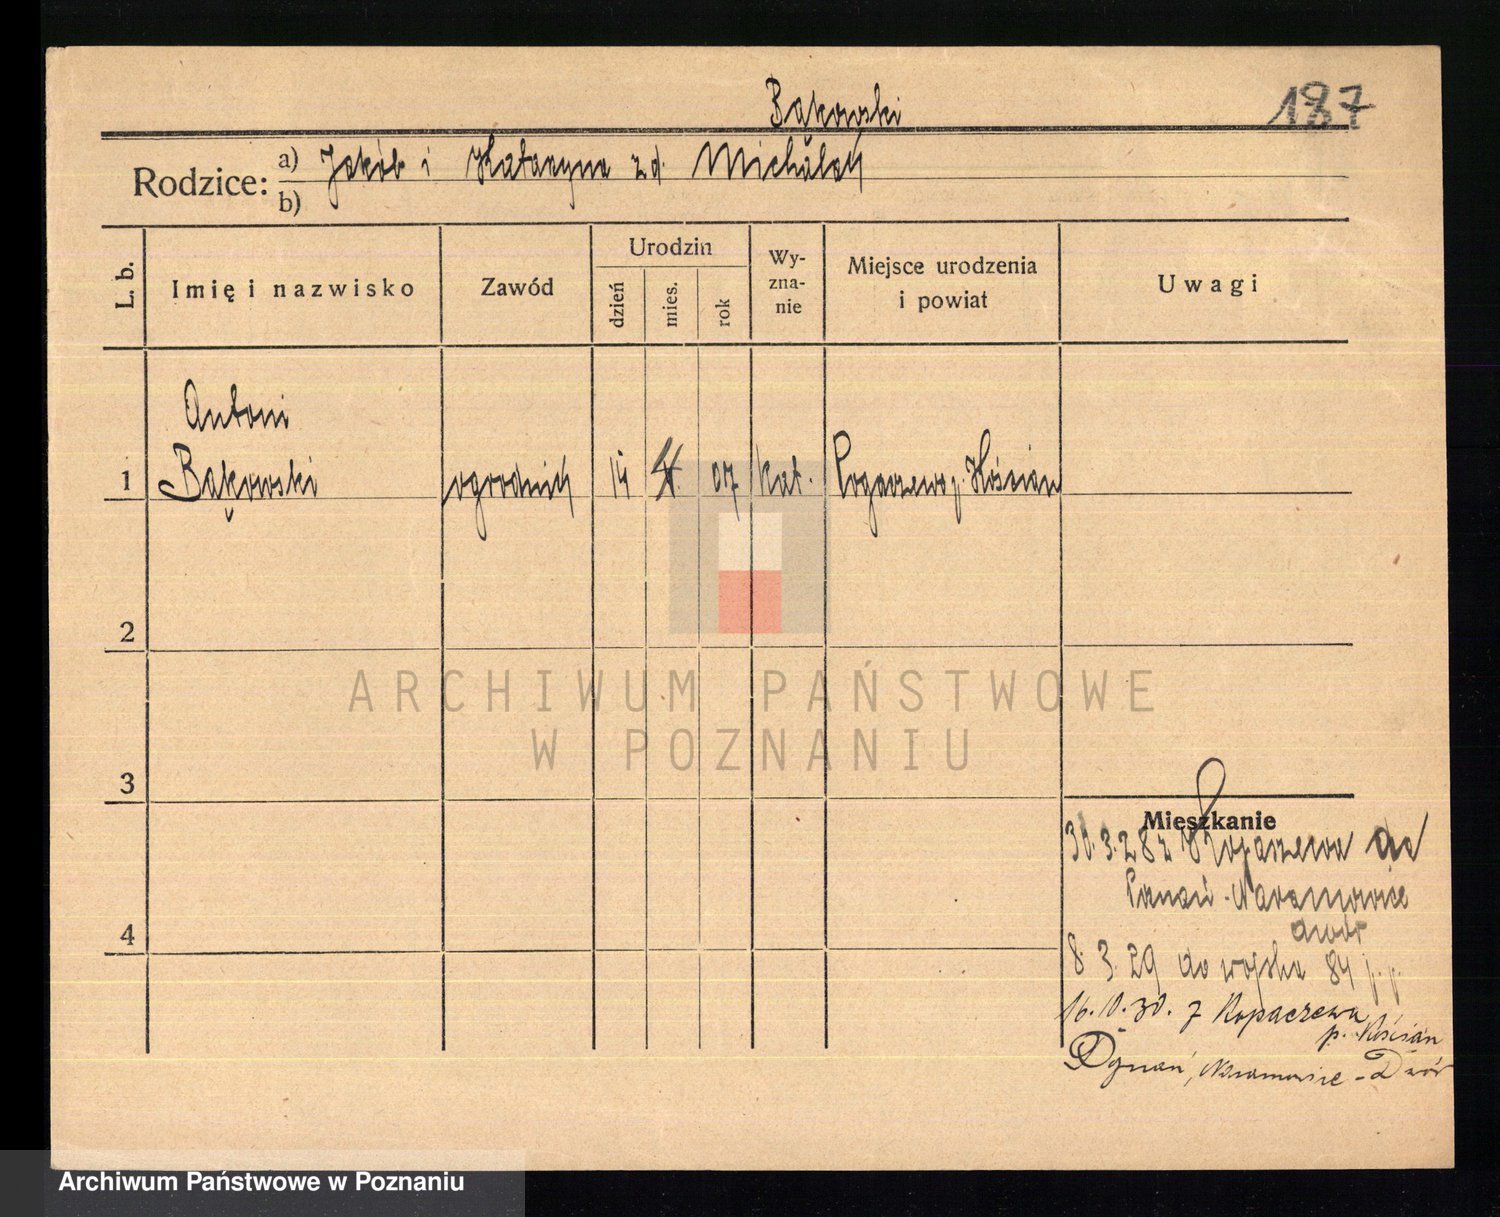 Bąkowski
187
Rodzice: a) Jakób i Katarzyna zd. Michalak
b)
L. b. Imię i nazwisko Zawód Urodzin dzień mies. rok Wyznanie Miejsce urodzenia i powiat Uwagi
Antoni
1 Bąkowski ogrodnik 14 4. 07 kat. Rogaczewo p. Kościan
2
ARCHIWUM PAŃSTWOWE
W POZNANIU
3
Mieszkanie
3.28 z do
Poznań - Naramowice
4
dwór
8. 3. 29 do wojska 84 p. p.
16. 30. z Kopaczewa
p. Kościan
Poznań, Naramowice - Dwór
Archiwum Państwowe w Poznaniu